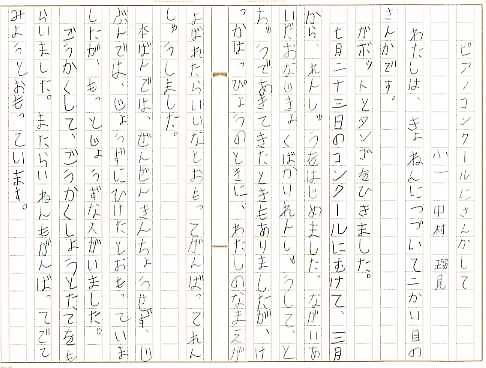 ピアノコンクールにさんかして
小一 中村
わたしは、きょねんにつづいて二かい目の
さんかです。
ガボットとタンゴをひきました。
七月二十三日のコンクールにむけて、三月
から、れんしゅうをはじめました。ながいあ
いだおなじきょくばかりれんしゅうして、と
ちゅうであきてきたときもありましたが、け
っかはっぴょうのときに、わたしのなまえが
よばれたらいいなとおもってがんばってれん
しゅうしました。
本ばんでは、ぜんぜんきんちょうせず、じ
ぶんでは、じょうずにひけたとおもっていま
したが、もっとじょうずな人がいました。
ごうかくして、ごうかくしょうとたてをも
らいました。またらいねんもがんばってでて
みようとおもっています。